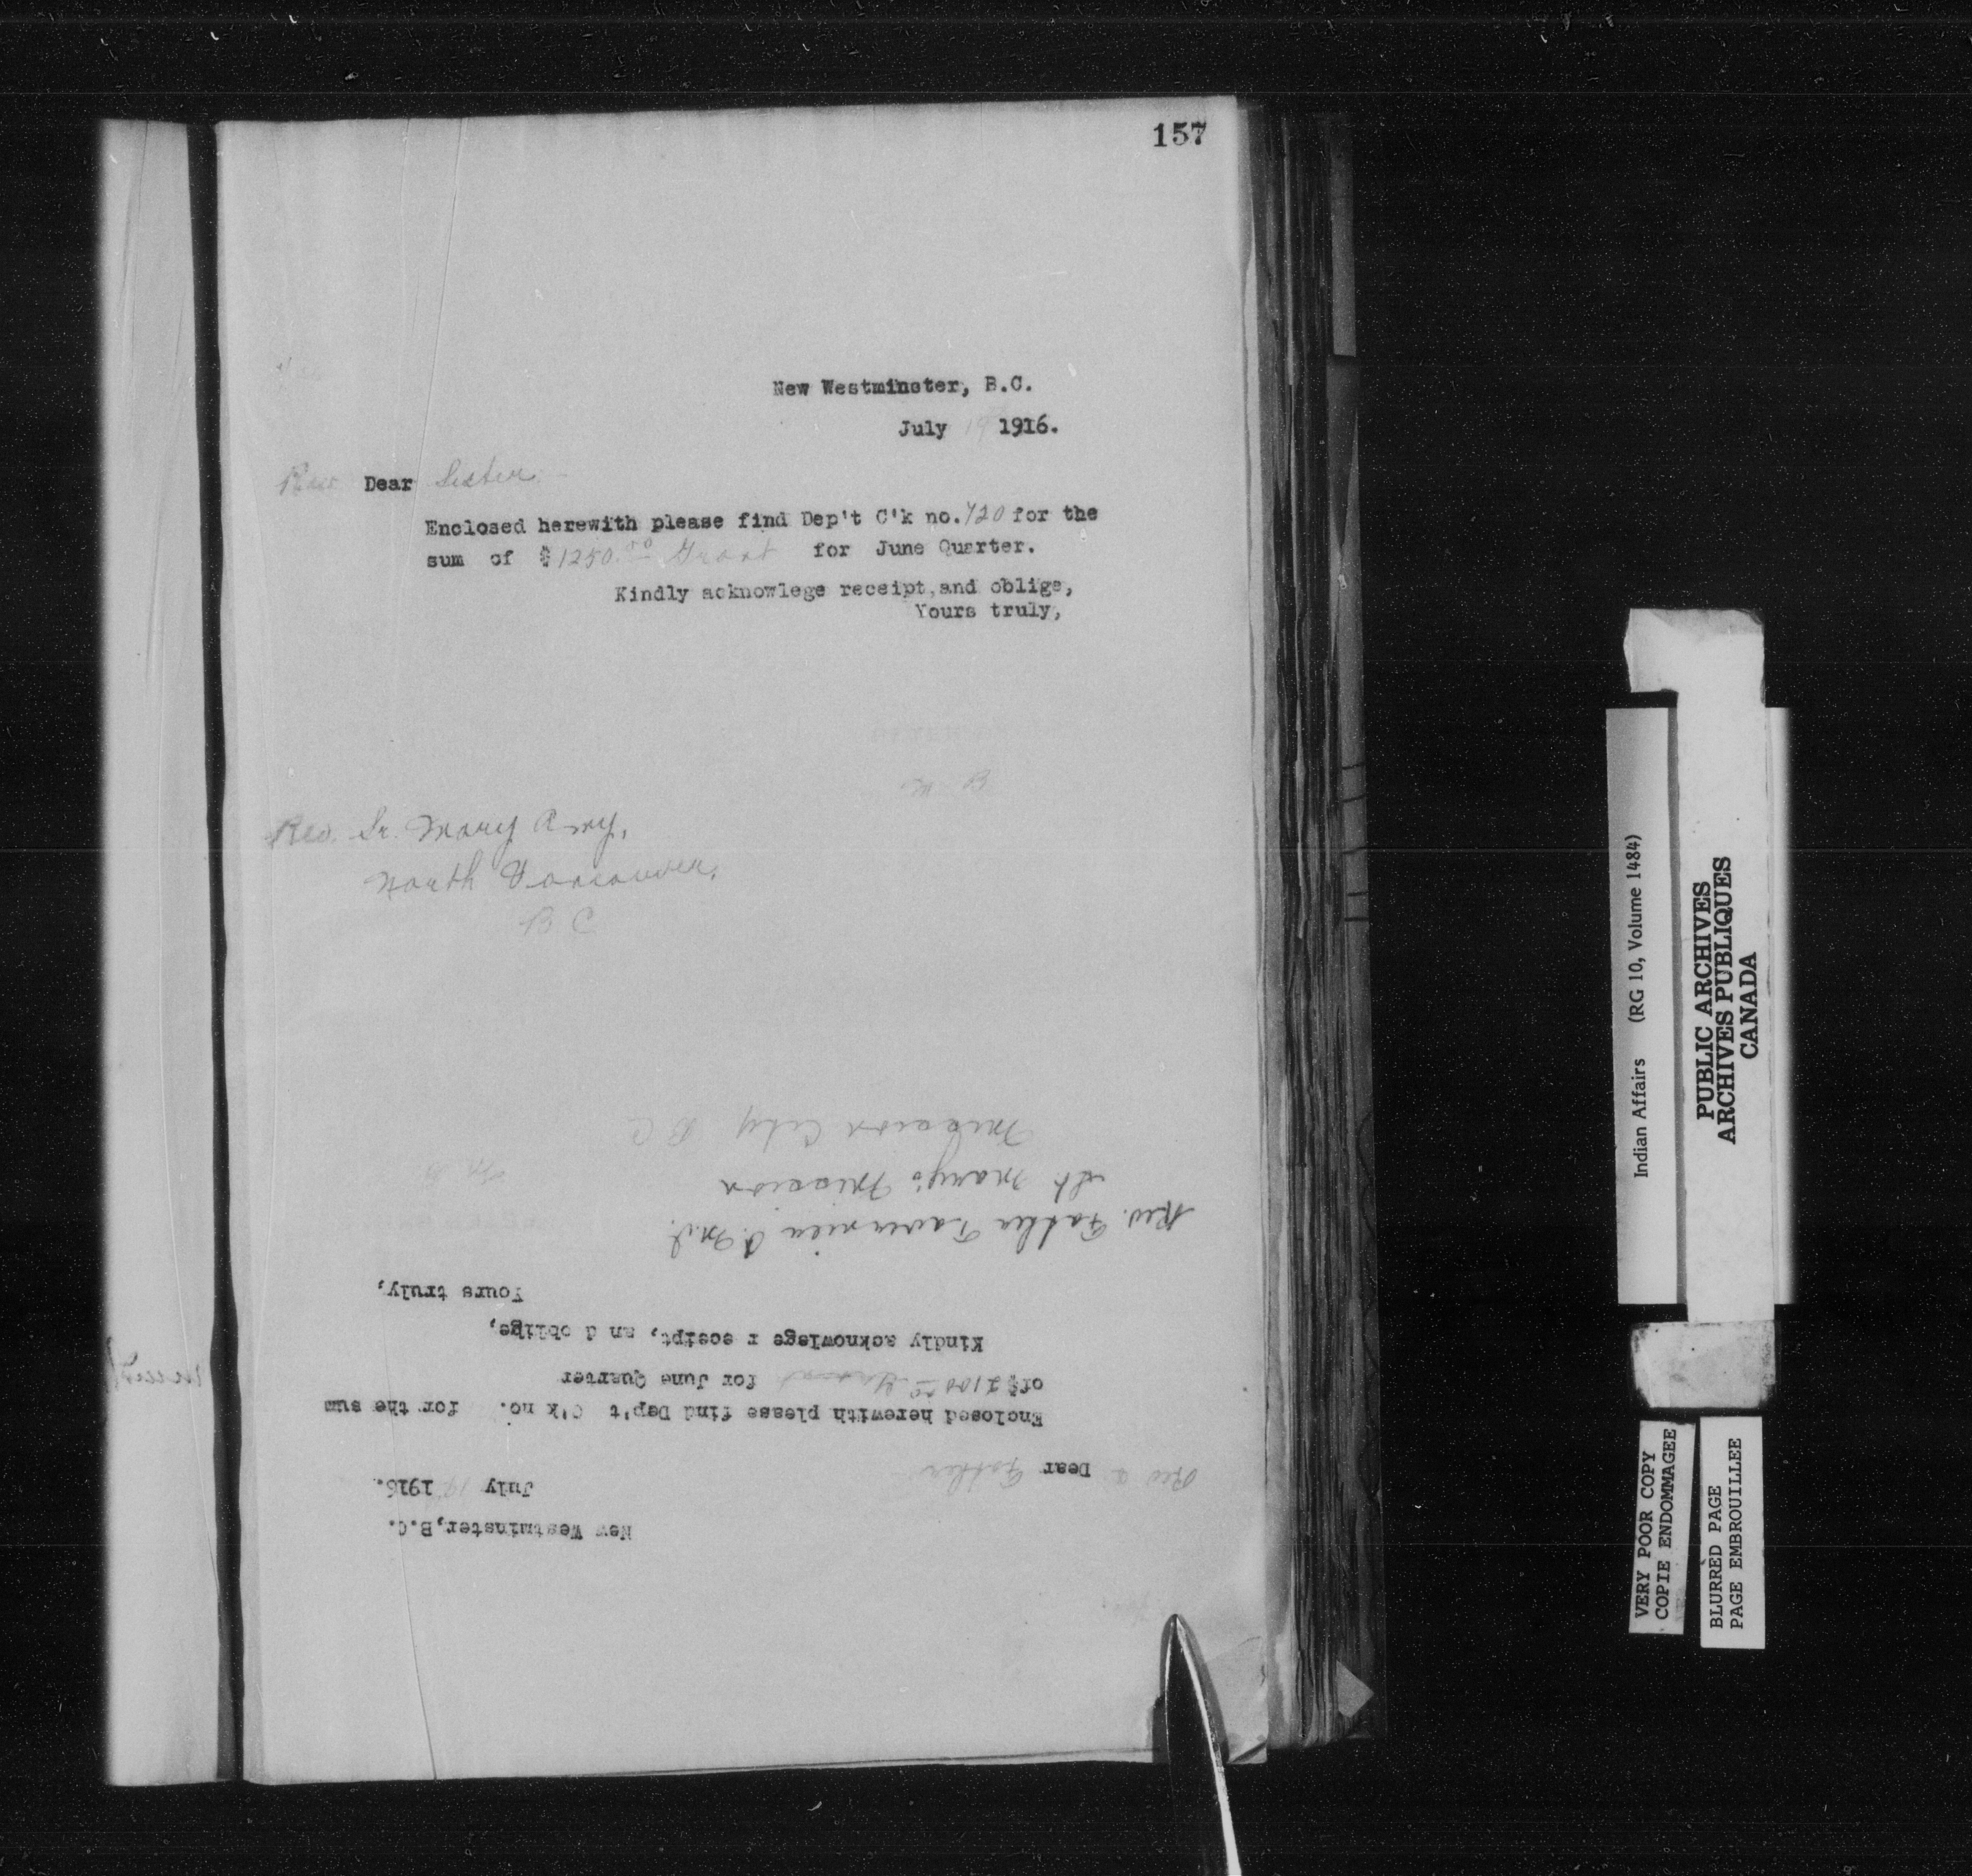 157
New Westminster, B.C.
July 19 1916.
Rev Dear Sister
Enclosed herewith please find Dep't C'k no. 720 for the
sum of $1250.00 Grant for June Quarter.
Kindly acknowlege receipt, and oblige,
Yours truly,
Rev. Sr. Mary Amy,
North Vancouver,
B C
New Westminster,B.C.
July 19 1916.
Rev Dear Father
Enclosed herewith please find Dep't C'k no. for the sum
of $ Grant for June Quarter
Kindly acknowlege r eceipt, an d oblige,
Yours truly,
Rev. Father O.M.I.
St Mary's Mission
Mission City B C
Indian Affairs (RG 10, Volume 1484)
PUBLIC ARCHIVES
ARCHIVES PUBLIQUES
CANADA
VERY POOR COPY
COPIE ENDOMMAGEE
BLURRED PAGE
PAGE EMBROUILLEE